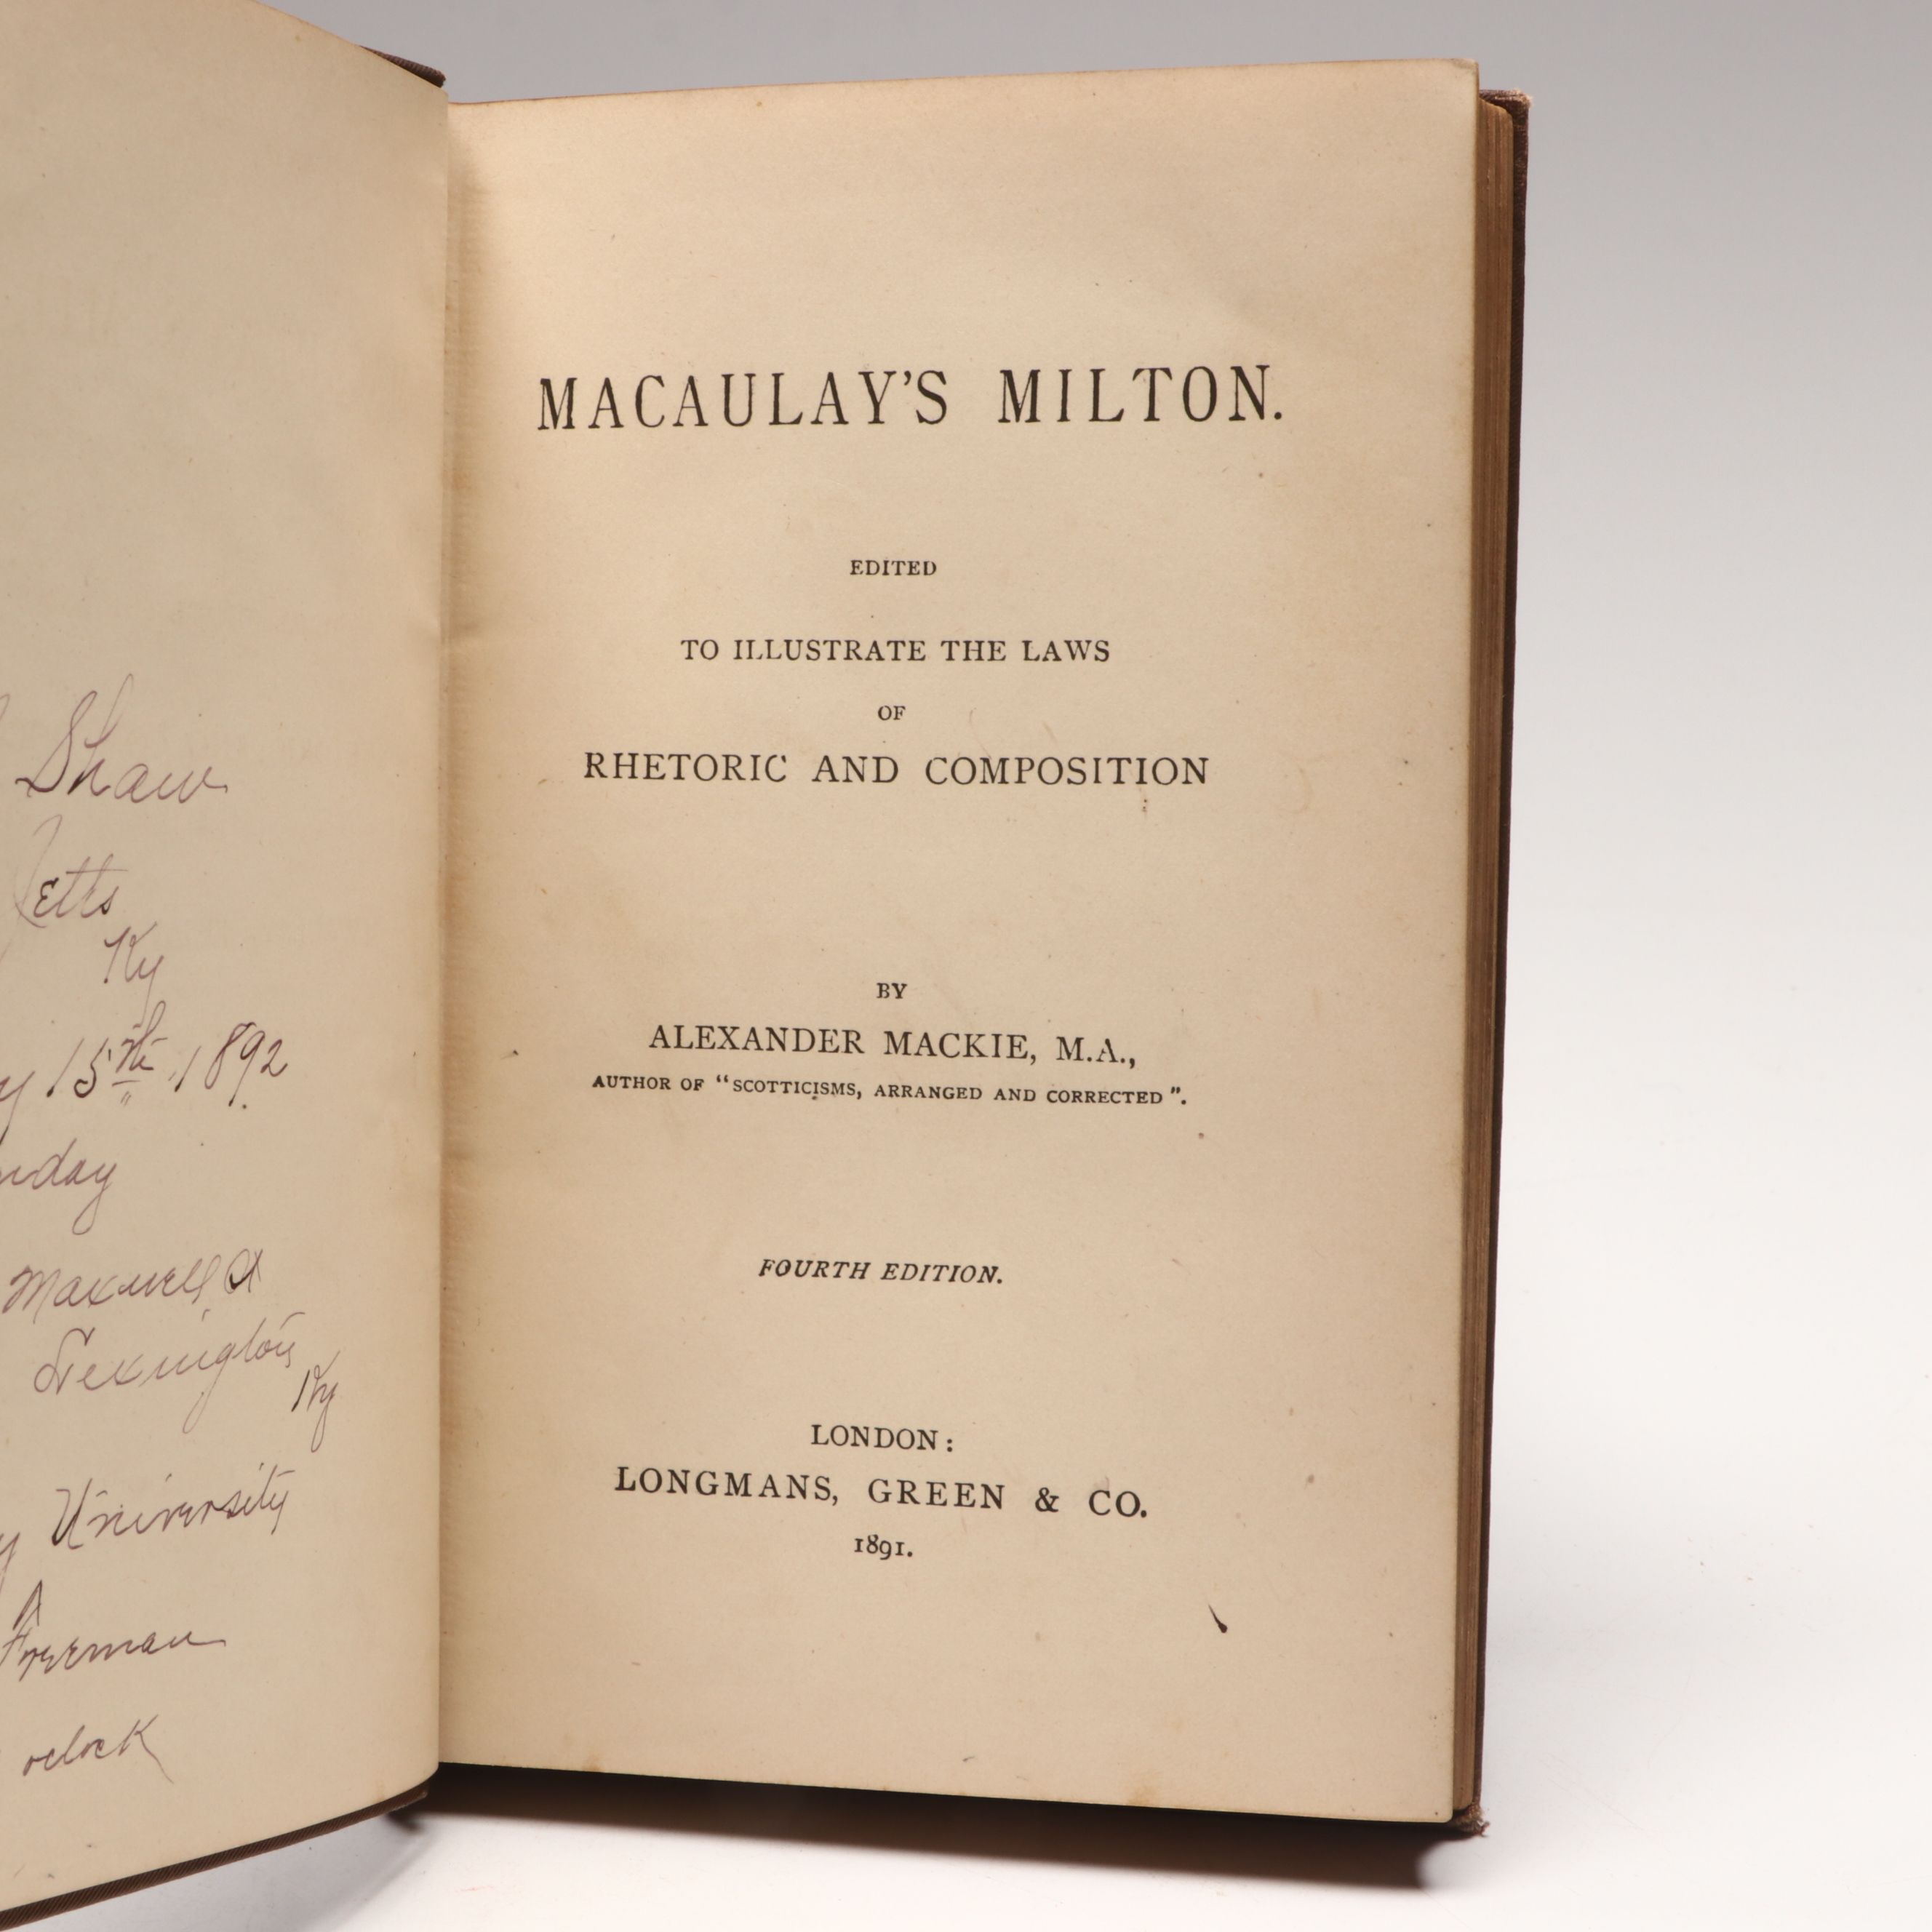 Shaw
Jetts
Ky
15th 1892
day
Maxwell
Lexington
Ky
University
Freeman
oclock
MACAULAY'S MILTON.
EDITED
TO ILLUSTRATE THE LAWS
OF
RHETORIC AND COMPOSITION
BY
ALEXANDER MACKIE, M.A.,
AUTHOR OF "SCOTTICISMS, ARRANGED AND CORRECTED".
FOURTH EDITION.
LONDON:
LONGMANS, GREEN & CO.
1891.